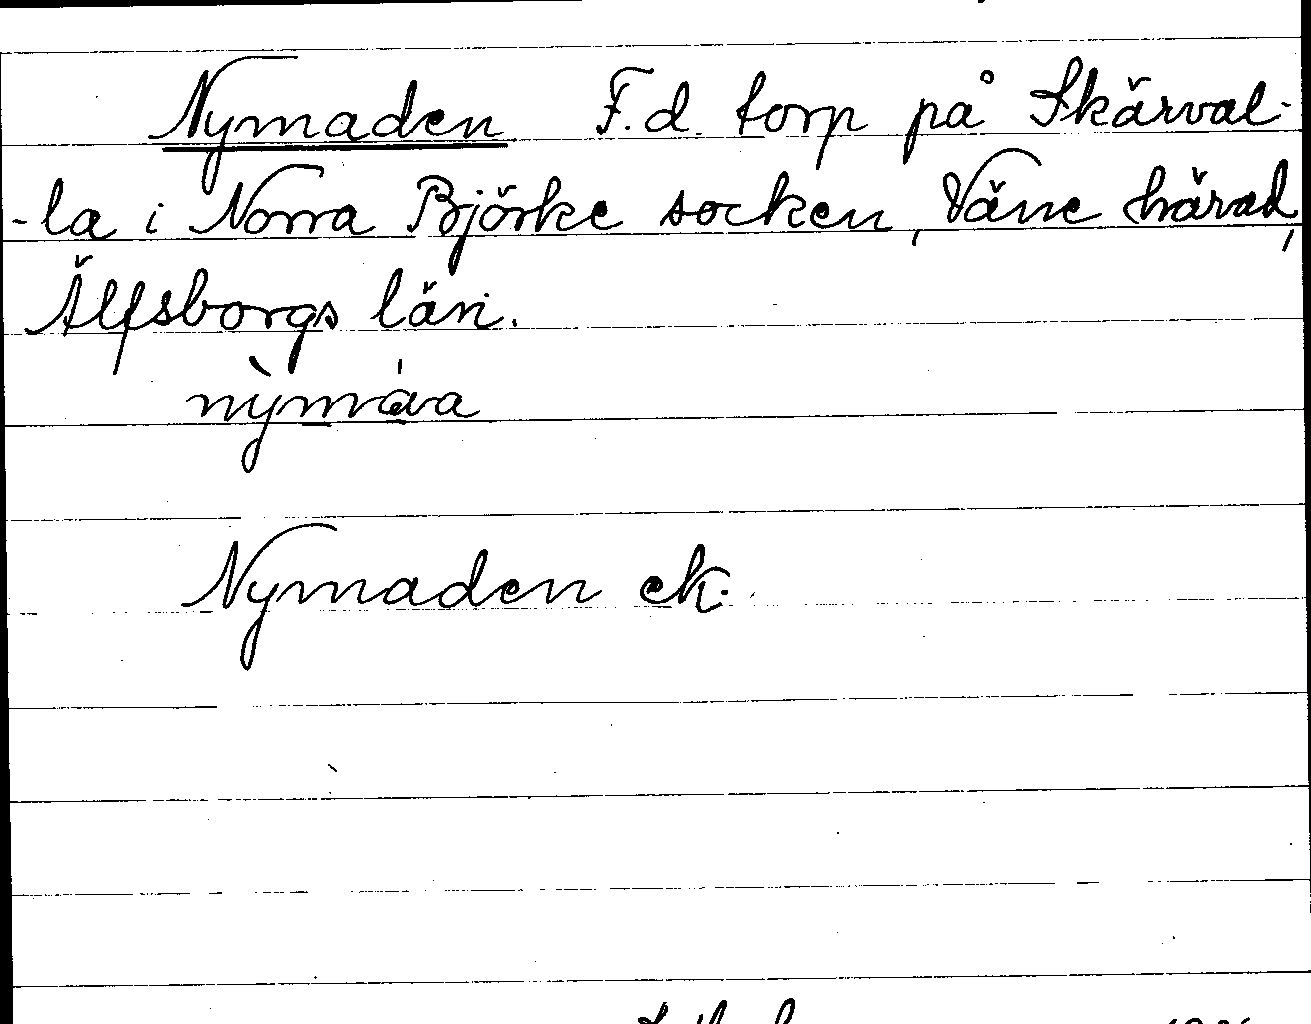 Nymaden F.d. torp på Skärval-
-la i Norra Björke socken, Väne härad,
Älfsborgs län.
Nymaden ek.